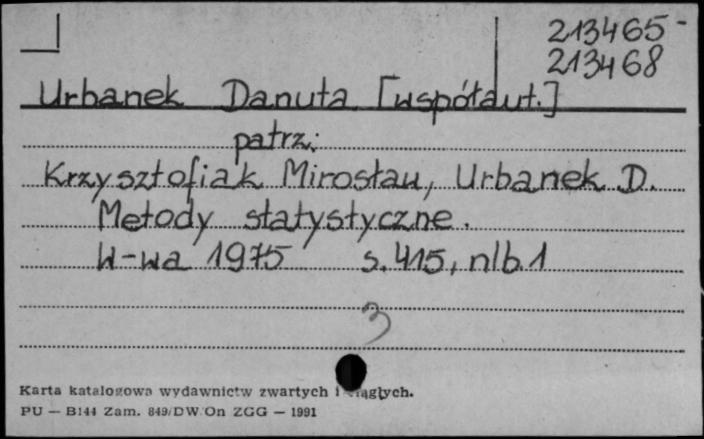 213465-
213468
Urbanek Danuta [współaut.]
patrz:
Krzysztofiak Mirosław, Urbanek D.
Metody statystyczne.
W-wa 1975 s. 415, nlb. 1
3
Karta katalogowa wydawnictw zwartych i ciągłych.
PU — B144 Zam. 849/DW/On ZGG — 1991